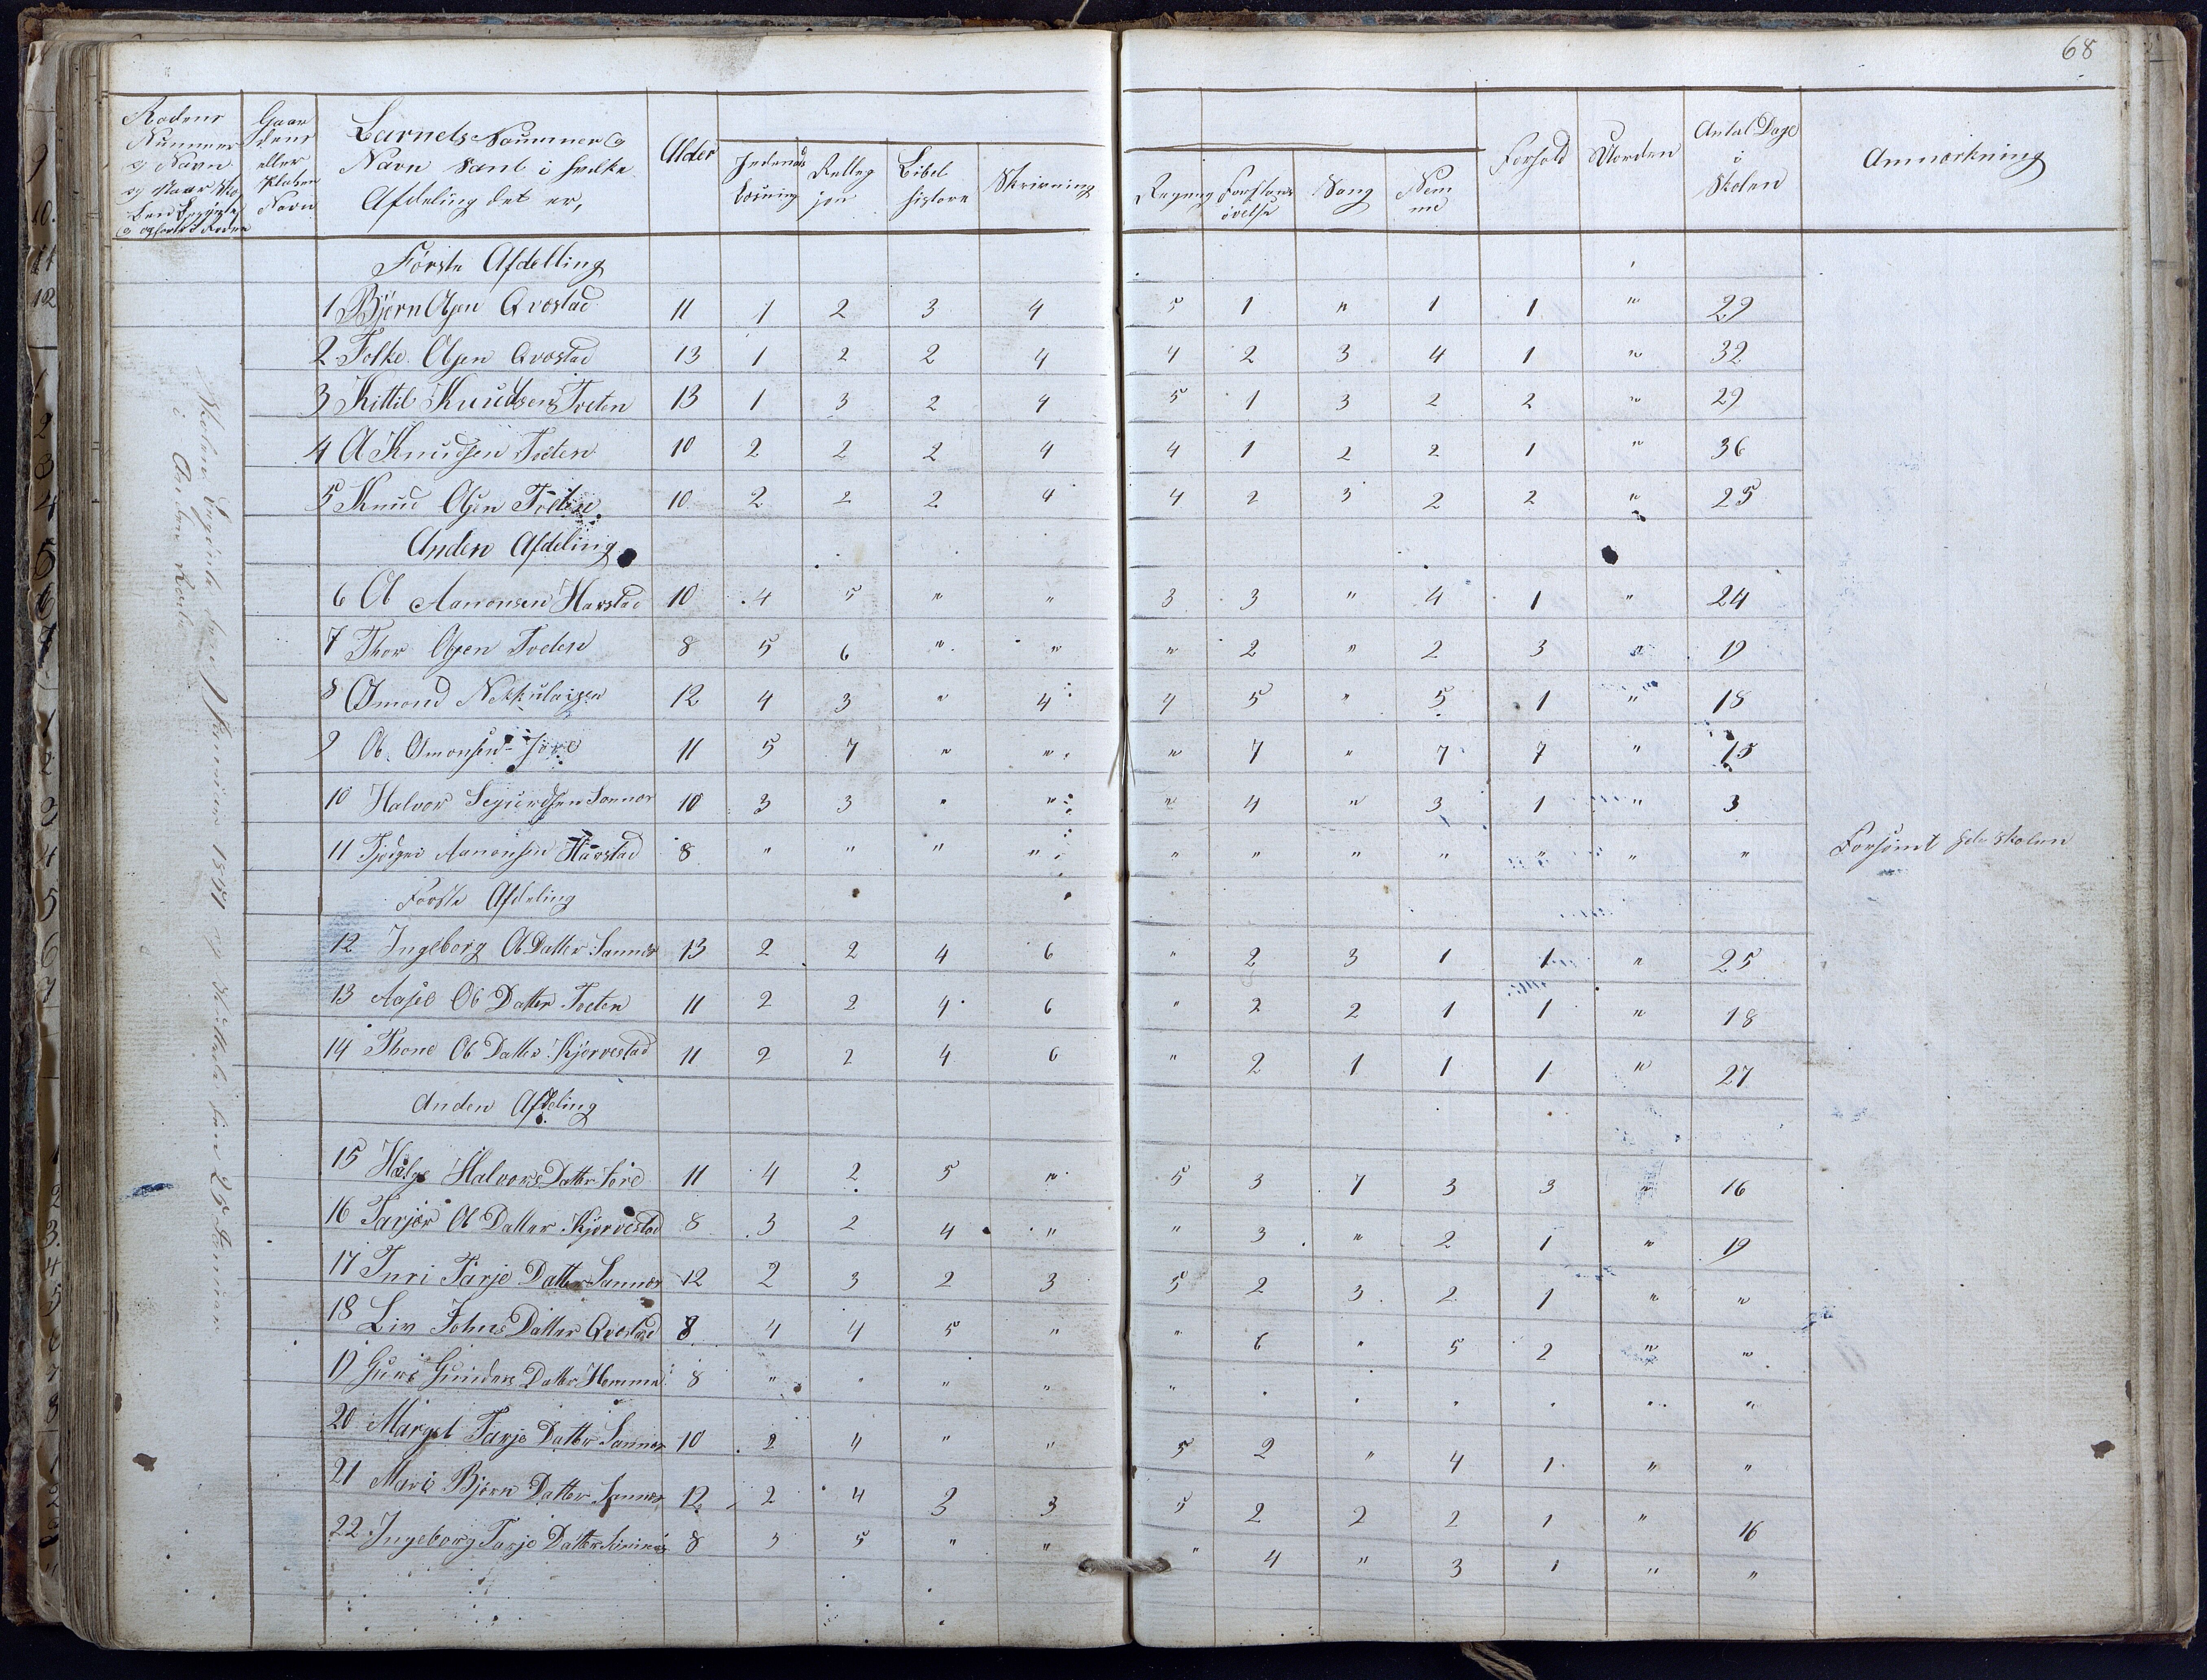 68
Rodens Nummer og Navn og naar Skolen
Gaardens eller Pladsens Navn
Barnets Nummer og Navn samt i hvilke Afdeling det er,
Alder
Indenadlæsning
Relligjon
Bibelhistore
Skrivning
Regning
Forstandsøvelse
Sang
Nemme
Forhold
Uorden
Antal Dage i Skolen
Anmærkning
Første Afdelling
1 Bjørn Olsen Qvostad 11 1 2 3 4 5 1 " 1 1 " 29
2 Folke Olsen Qvostad 13 1 2 2 4 4 2 3 4 1 " 32
3 Kittil Knudsen Tveten 13 1 3 2 4 5 1 3 2 2 " 29
4 O Knudsen Tveten 10 2 2 2 4 4 1 2 2 1 " 36
5 Knud Olsen Tveten 10 2 2 2 4 4 2 3 2 2 " 25
Anden Afdeling
6 Ol Aanonsen Havstad 10 4 5 " " 3 3 " 4 1 " 24
7 Thor Olsen Tveten 8 5 6 " " " 2 " 2 3 " 19
8 Osmond Nikkulaisen 12 4 3 " 4 4 5 " 5 1 " 18
9 Ol Osmonsen 11 5 7 " " " 7 " 7 7 " 15
10 Halvor Segurdsen Sannes 10 3 3 " " " 4 " 3 1 " 3
11 Aanonsen Havstad 8 " " " " " " " " " " " Forsömt hele skolen
Forste Afdeling
12 Ingeborg Ol Datter Sannes 13 2 2 4 6 " 2 3 1 1 " 25
13 Aasel Ol Datter Tveten 11 2 2 4 6 " 2 2 1 1 " 18
14 Thone Ol Datter Kjörvestad 11 2 2 4 6 " 2 1 1 1 " 27
Anden Afdeling
15 Helge Halvors Datter 11 4 2 5 " 5 3 7 3 3 " 16
16 Tarjer Ol Datter Kjörvestad 8 3 2 4 " " 3 " 2 1 " 19
17 Turi Tarje Datter Sannes 12 2 3 2 3 5 2 3 2 1 " "
18 Liv Johns Datter Qvostad 8 4 4 5 " " 6 " 5 2 " "
19 Guro Gunders Datter 8 " " " " " " " " " " "
20 Marget Tarje Datter Sannes 10 2 4 " " 5 2 " 4 1 " "
21 Mari Bjørn Datter Sannes 12 2 4 3 3 5 2 2 2 1 " 16
22 Ingeborg Tarje Datter Sannes 8 3 5 " " " 4 " 3 1 " "
Skolen Begynte den 7 Januar 1841 og Sluttede den 25 Januar
i